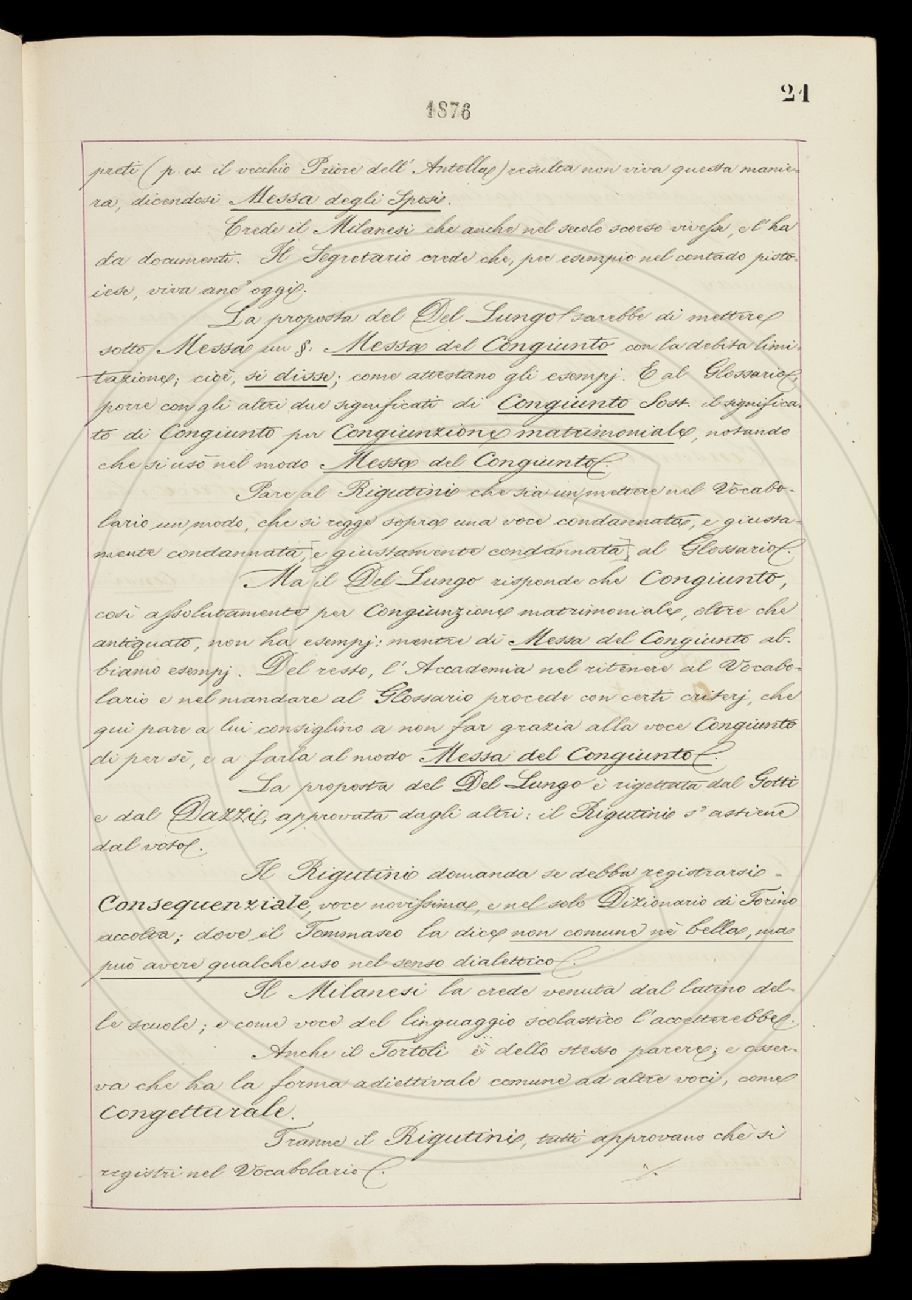 1876
21
preti (p. es. il vecchio Priore dell' Antella) resulta non viva questa manie-
ra, dicendosi Messa degli Sposi.
Crede il Milanesi che anche nel secolo scorso vivesse, e l' ha
da documenti. Il Segretario crede che, per esempio nel contado pisto-
iese, viva anc' oggi.
La proposta del Del Lungo sarebbe di mettere
sotto Messa un §. Messa del Congiunto con la debita limi-
tazione; cioè, si disse; come attestano gli esempj. E al Glossario,
porre con gli altri due significati di Congiunto Sost. il significa-
to di Congiunto per Congiunzione matrimoniale, notando
che si usò nel modo Messa del Congiunto.
Pare al Rigutini che sia un mettere nel Vocabo-
lario un modo, che si regge sopra una voce condannata, e giusta-
mente condannata, [e giustamente condannata], al Glossario.
Ma il Del Lungo risponde che Congiunto,
così assolutamente per Congiunzione matrimoniale, oltre che
antiquato, non ha esempj: mentre di Messa del Congiunto ab-
biamo esempj. Del resto, l' Accademia nel ritenere al Vocabo-
lario e nel mandare al Glossario procede con certi criterj, che
qui pare a lui consiglino a non far grazia alla voce Congiunto
di per sè, e a farla al modo Messa del Congiunto.
La proposta del Del Lungo è rigettata dal Gotti
e dal Dazzi, approvata dagli altri: il Rigutini s' astiene
dal voto.
Il Rigutini domanda se debba registrarsi
Consequenziale, voce novissima, e nel solo Dizionario di Torino
accolta; dove il Tommaseo la dice non comune nè bella, ma
può avere qualche uso nel senso dialettico.
Il Milanesi la crede venuta dal latino del-
le scuole; e come voce del linguaggio scolastico l' accetterebbe.
Anche il Tortoli è dello stesso parere; e osser-
va che ha la forma adiettivale comune ad altre voci, come
Congetturale.
Tranne il Rigutini, tutti approvano che si
registri nel Vocabolario.